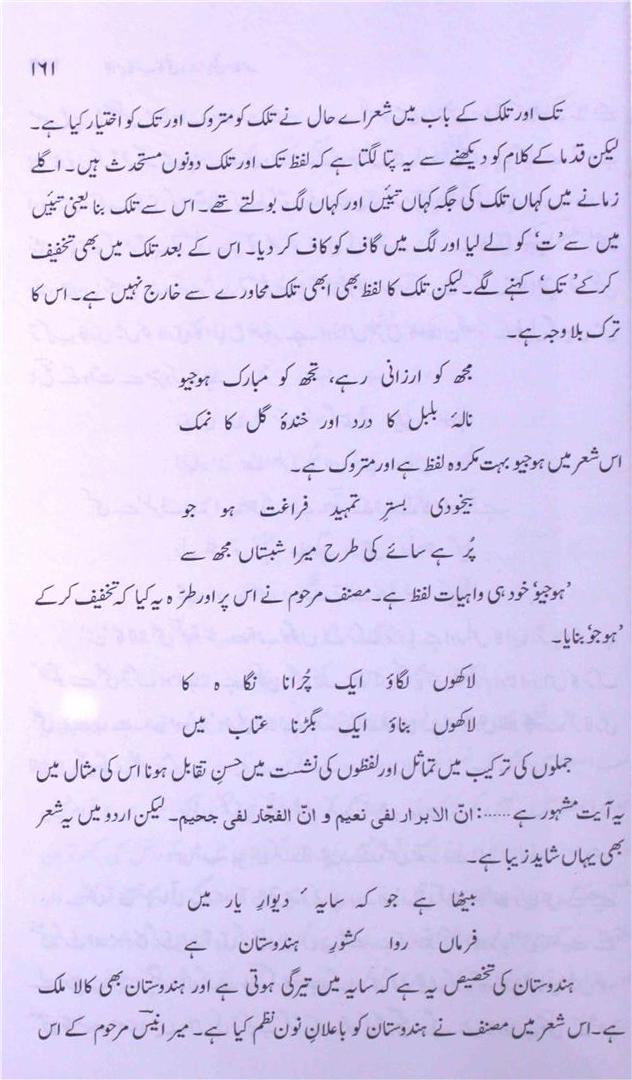 ۱۶۱
تک اور تلک کے باب میں شعراے حال نے تلک کو متروک اور تک کو اختیار کیا ہے۔
لیکن قدما کے کلام کو دیکھنے سے یہ پتا لگتا ہے کہ لفظ تک اور تلک دونوں مستحدث ہیں۔ اگلے
زمانے میں کہاں تلک کی جگہ کہاں تئیں اور کہاں لگ بولتے تھے۔ اس سے تلک بنا یعنی تئیں
میں سے ’ت‘ کو لے لیا اور لگ میں گاف کو کاف کر دیا۔ اس کے بعد تلک میں بھی تخفیف
کر کے ’تک‘ کہنے لگے۔ لیکن تلک کا لفظ بھی ابھی تلک محاورے سے خارج نہیں ہے۔ اس کا
ترک بلا وجہ ہے۔
مجھ کو ارزانی رہے، تجھ کو مبارک ہوجیو
نالۂ بلبل کا درد اور خندۂ گل کا نمک
اس شعر میں ہوجیو بہت مکروہ لفظ ہے اور متروک ہے۔
بیخودی بسترِ تمہیدِ فراغت ہو جو
پُر ہے سائے کی طرح میرا شبستاں مجھ سے
’ہوجیو‘ خود ہی واہیات لفظ ہے۔ مصنف مرحوم نے اس پر اور طرّہ یہ کیا کہ تخفیف کر کے
’ہوجو‘ بنایا۔
لاکھوں لگاؤ ایک چُرانا نگاہ کا
لاکھوں بناؤ ایک بگڑنا عتاب میں
جملوں کی ترکیب میں تماثل اور لفظوں کی نشست میں حسنِ تقابل ہونا اس کی مثال میں
یہ آیت مشہور ہے……: انّ الابرار لفی نعیم و انّ الفجّار لفی جحیم۔ لیکن اردو میں یہ شعر
بھی یہاں شاید زیبا ہے۔
بیٹھا ہے جو کہ سایہٴ دیوارِ یار میں
فرماں روا کشورِ ہندوستان ہے
ہندوستان کی تخصیص یہ ہے کہ سایہ میں تیرگی ہوتی ہے اور ہندوستان بھی کالا ملک
ہے۔ اس شعر میں مصنف نے ہندوستان کو باعلانِ نون نظم کیا ہے۔ میر انیسؔ مرحوم کے اس